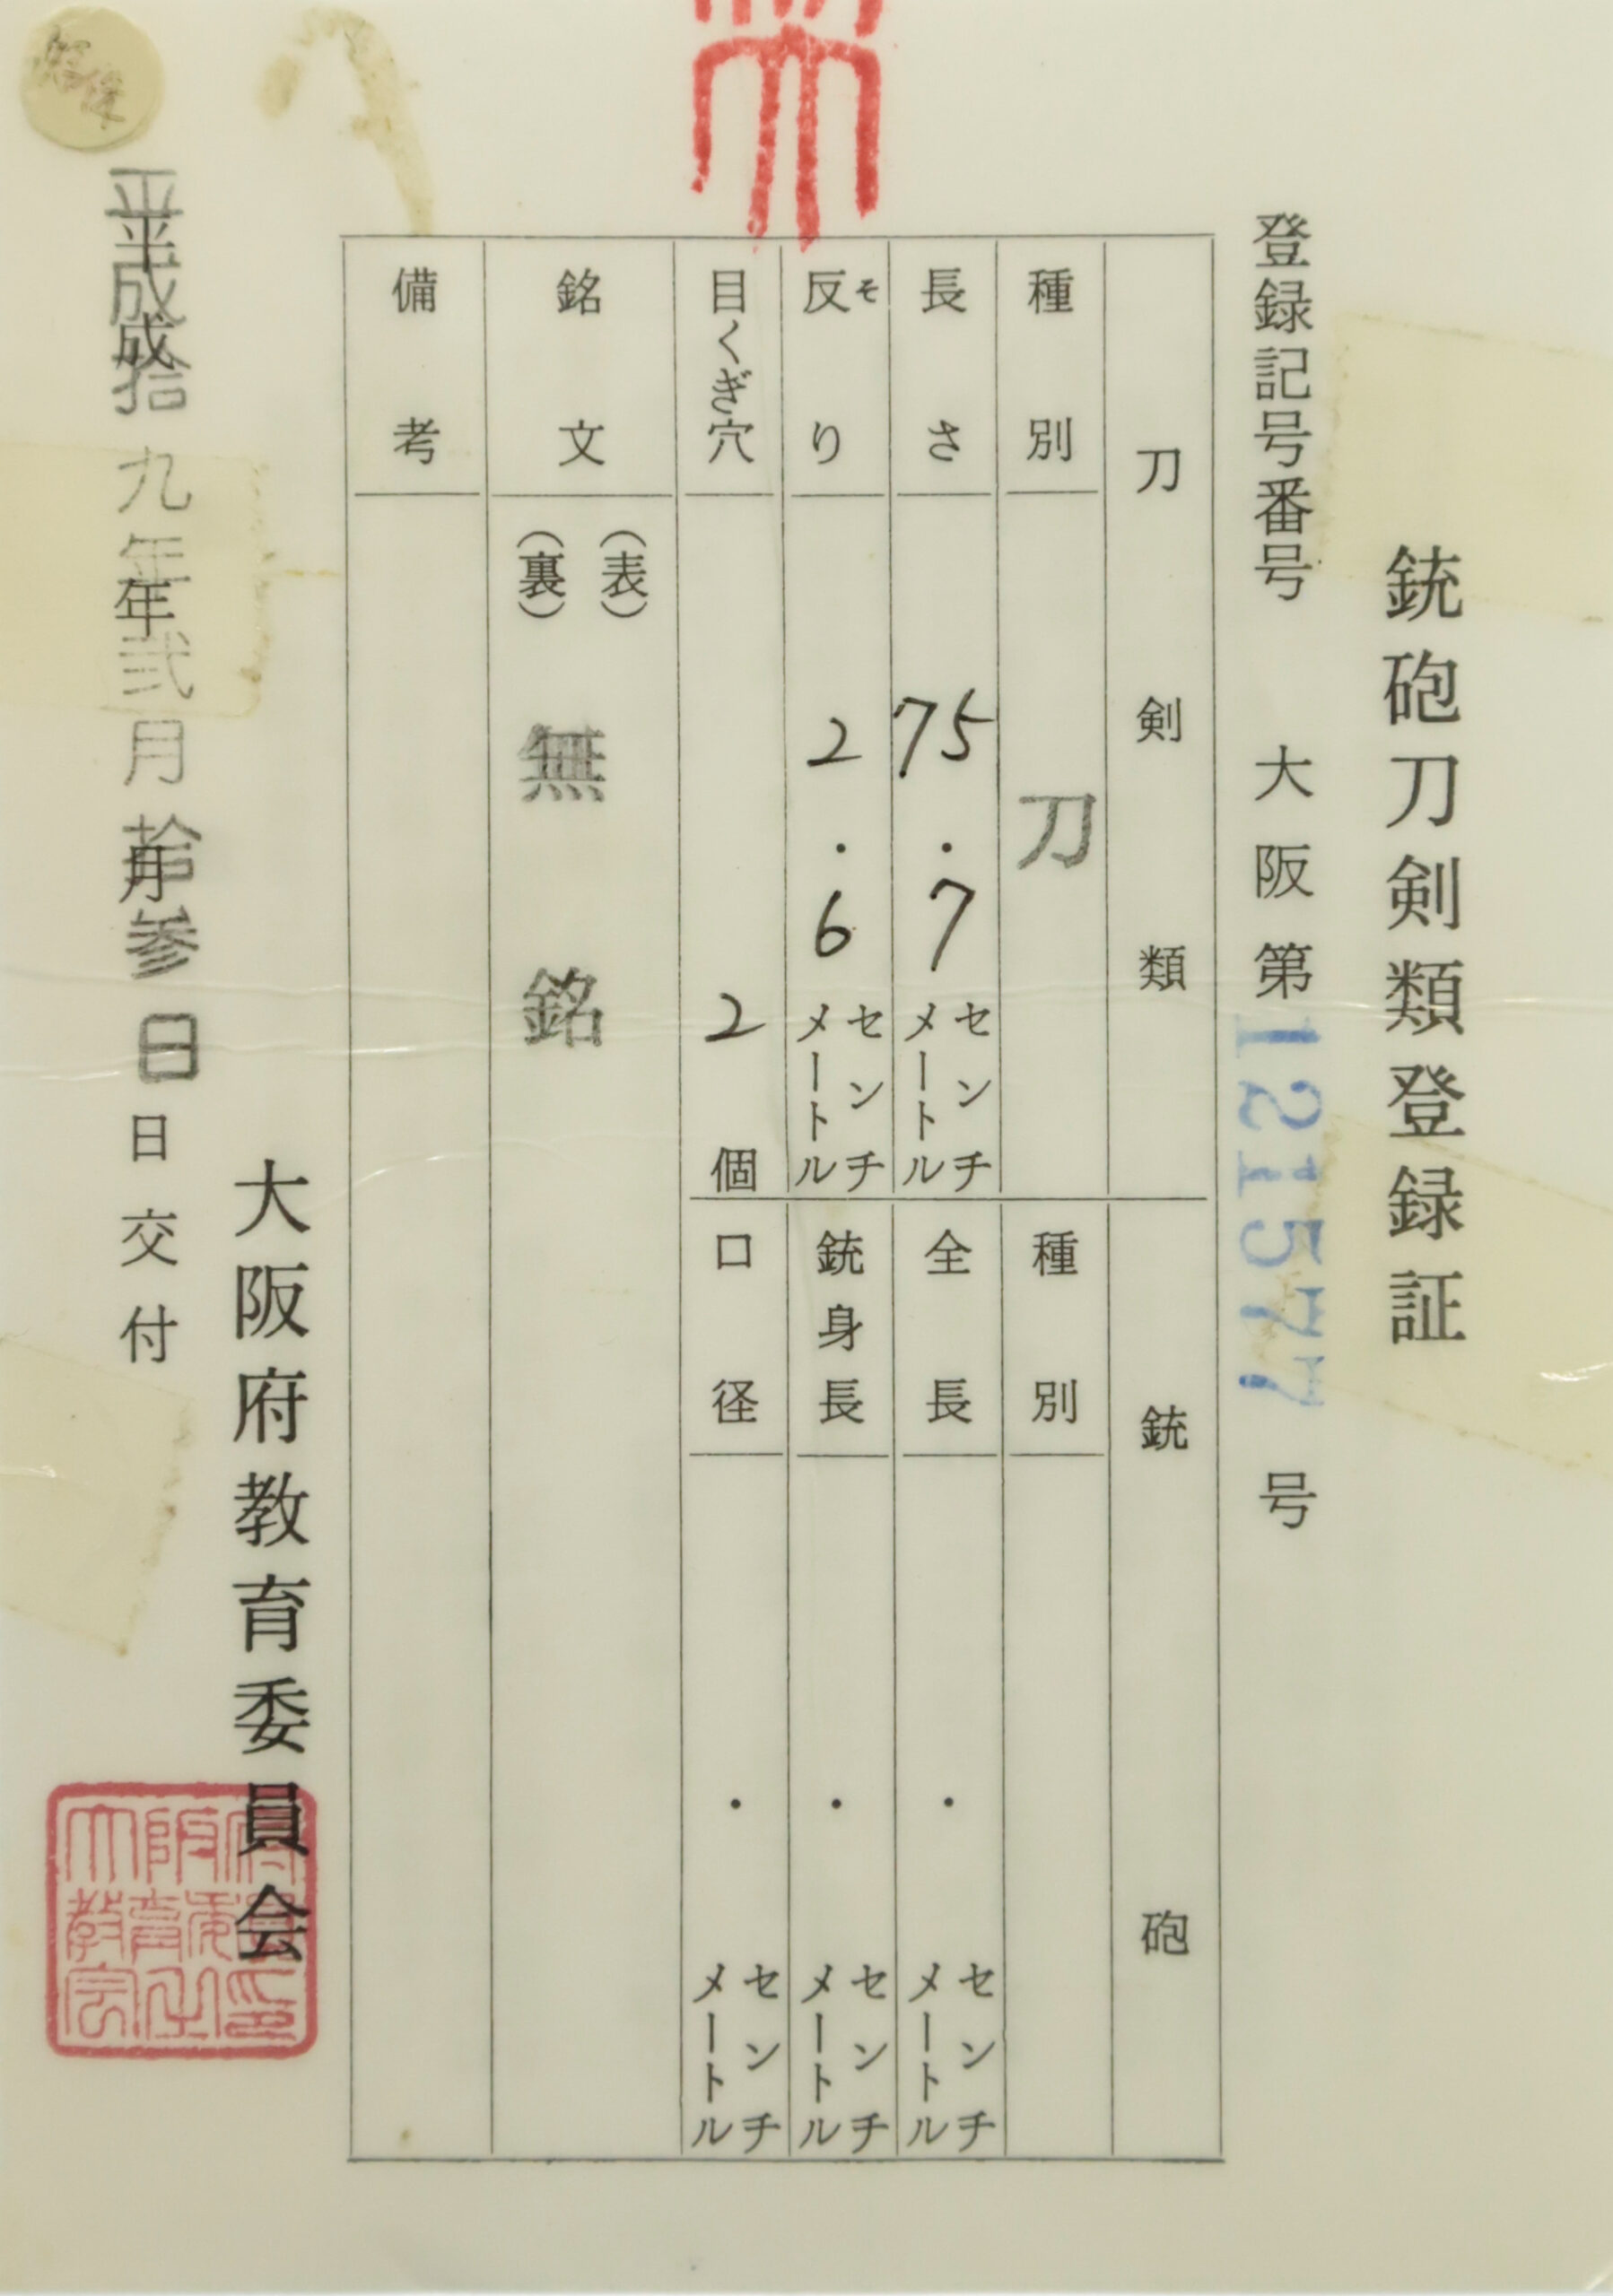 銃砲刀剣類登録証
登録記号番号 大阪第121577号
刀剣類
種別 刀
長さ 75.7 センチメートル
反り 2.6 センチメートル
そ
目くぎ穴 2個
銘文 (表)
(裏)
無銘
備考
銃砲
種別
全長 . センチメートル
銃身長 . センチメートル
口径 . センチメートル
平成拾九年弐月拾参日
平成 年 月 日交付
大阪府教育委員会
大阪府教育委員会之印